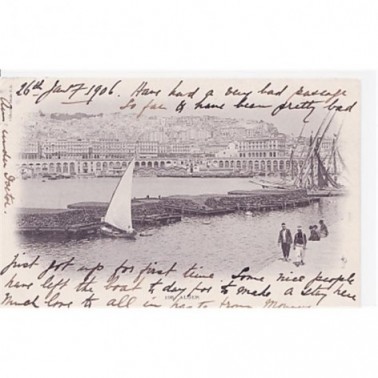 26th Jan 1906. Have had a very bad passage
So far & have been pretty bad
under Doctor.
Just got up for first time. Some nice people
have left the boat to day for to make a stay here
Much love to all in
ALGER